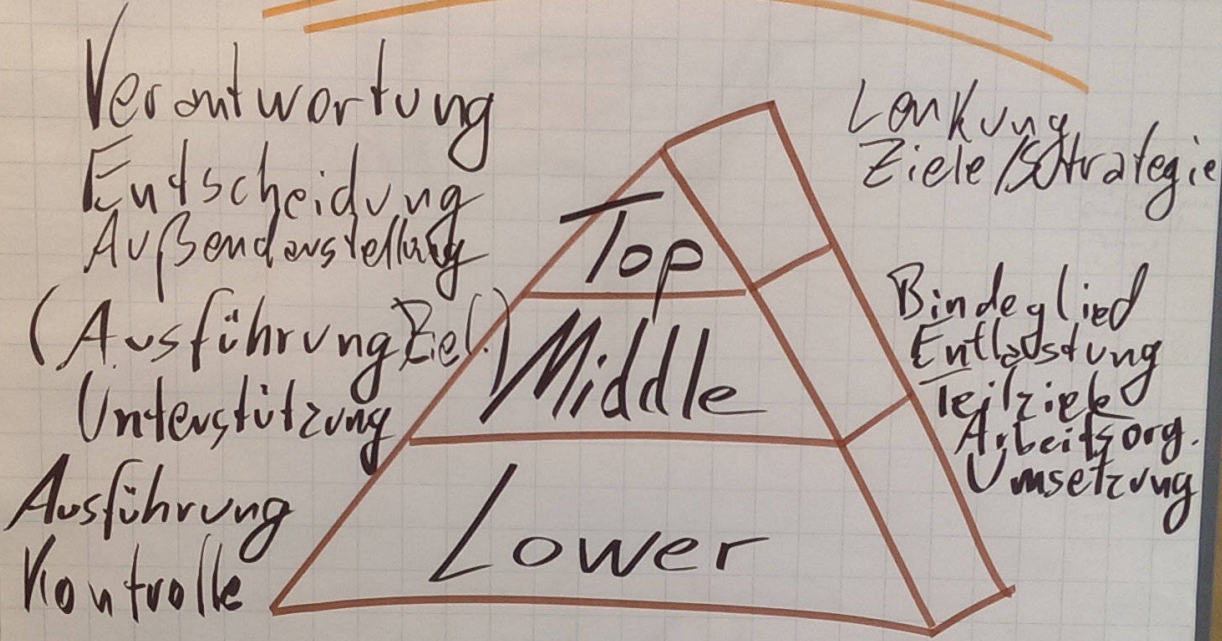 Verantwortung
Entscheidung
Außendarstellung
(Ausführung Ziel.)
Unterstützung
Ausführung
Kontrolle
Top
Middle
Lower
Lenkung
Ziele/Strategie
Bindeglied
Entlastung
Teilziele
Arbeitsorg.
Umsetzung